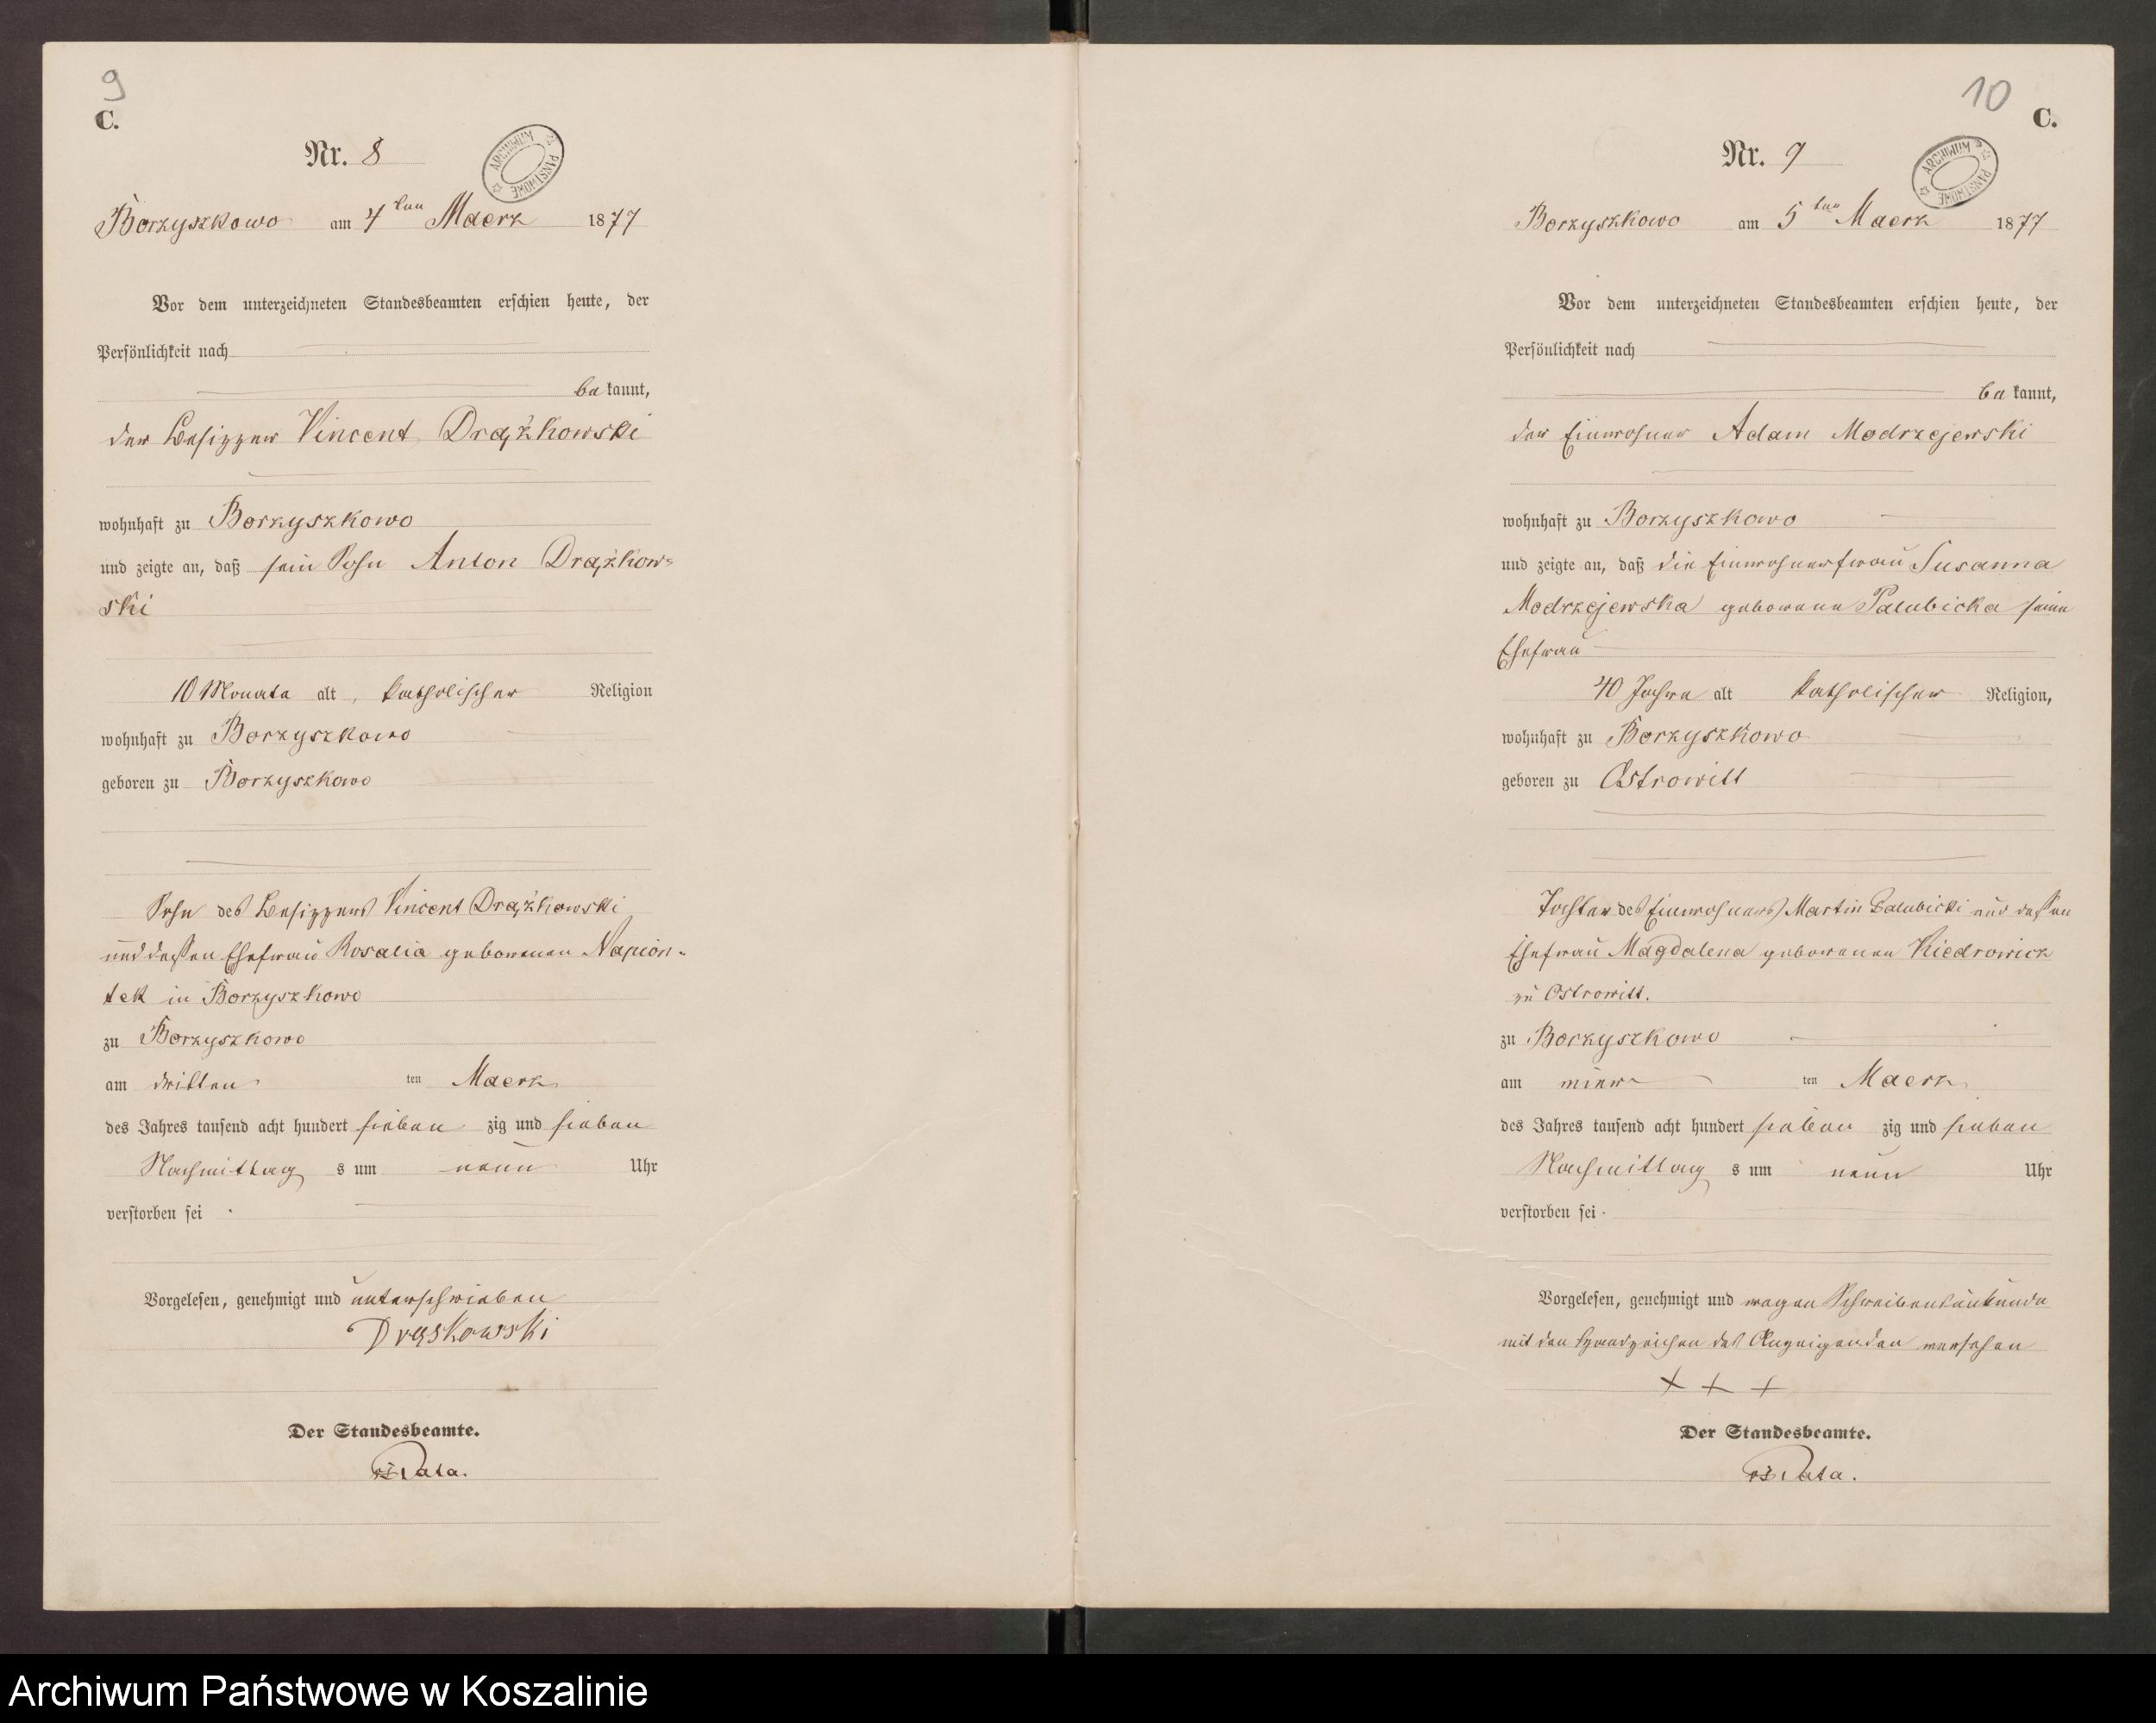 9
C.
Nr. 8
ARCHIWUM PAŃSTWOWE
Borzyszkowo am 4ten Maerz 1877
Vor dem unterzeichneten Standesbeamten erschien heute, der
Persönlichkeit nach
bekannt,
der Besizzer Vincent Drążkowski
wohnhaft zu Borzyszkowo
und zeigte an, daß sein Sohn Anton Drążkow-
ski
10 Monate alt, katholischer Religion
wohnhaft zu Borzyszkowo
geboren zu Borzyszkowo
Sohn des Besizzers Vincent Drążkowski
und dessen Ehefrau Rosalia geborenen Napion-
tek in Borzyszkowo
zu Borzyszkowo
am dritten ten Maerz
des Jahres tausend acht hundert sieben zig und sieben
Nachmittag s um neun Uhr
verstorben sei
Vorgelesen, genehmigt und unterschrieben
Drąskowski
Der Standesbeamte.
10
C.
Nr. 9
ARCHIWUM PAŃSTWOWE
Borzyszkowo am 5ten Maerz 1877
Vor dem unterzeichneten Standesbeamten erschien heute, der
Persönlichkeit nach
bekannt,
der Einwohner Adam Modrzejewski
wohnhaft zu Borzyszkowo
und zeigte an, daß die Einwohnerfrau Susanna
Modrzejewska geborene Palubicka seine
Ehefrau
40 Jahre alt katholischer Religion,
wohnhaft zu Borzyszkowo
geboren zu Ostrowitt
Tochter des Einwohners Martin Palubicki und dessen
Ehefrau Magdalena geborenen Kiedrowicz
zu Ostrowitt.
zu Borzyszkowo
am vier ten Maerz
des Jahres tausend acht hundert sieben zig und sieben
Nachmittag s um neun Uhr
verstorben sei
Vorgelesen, genehmigt und wegen Schreibensunkunde
mit den Handzeichen des Anzeigenden versehen
+ + +
Der Standesbeamte.
Archiwum Państwowe w Koszalinie